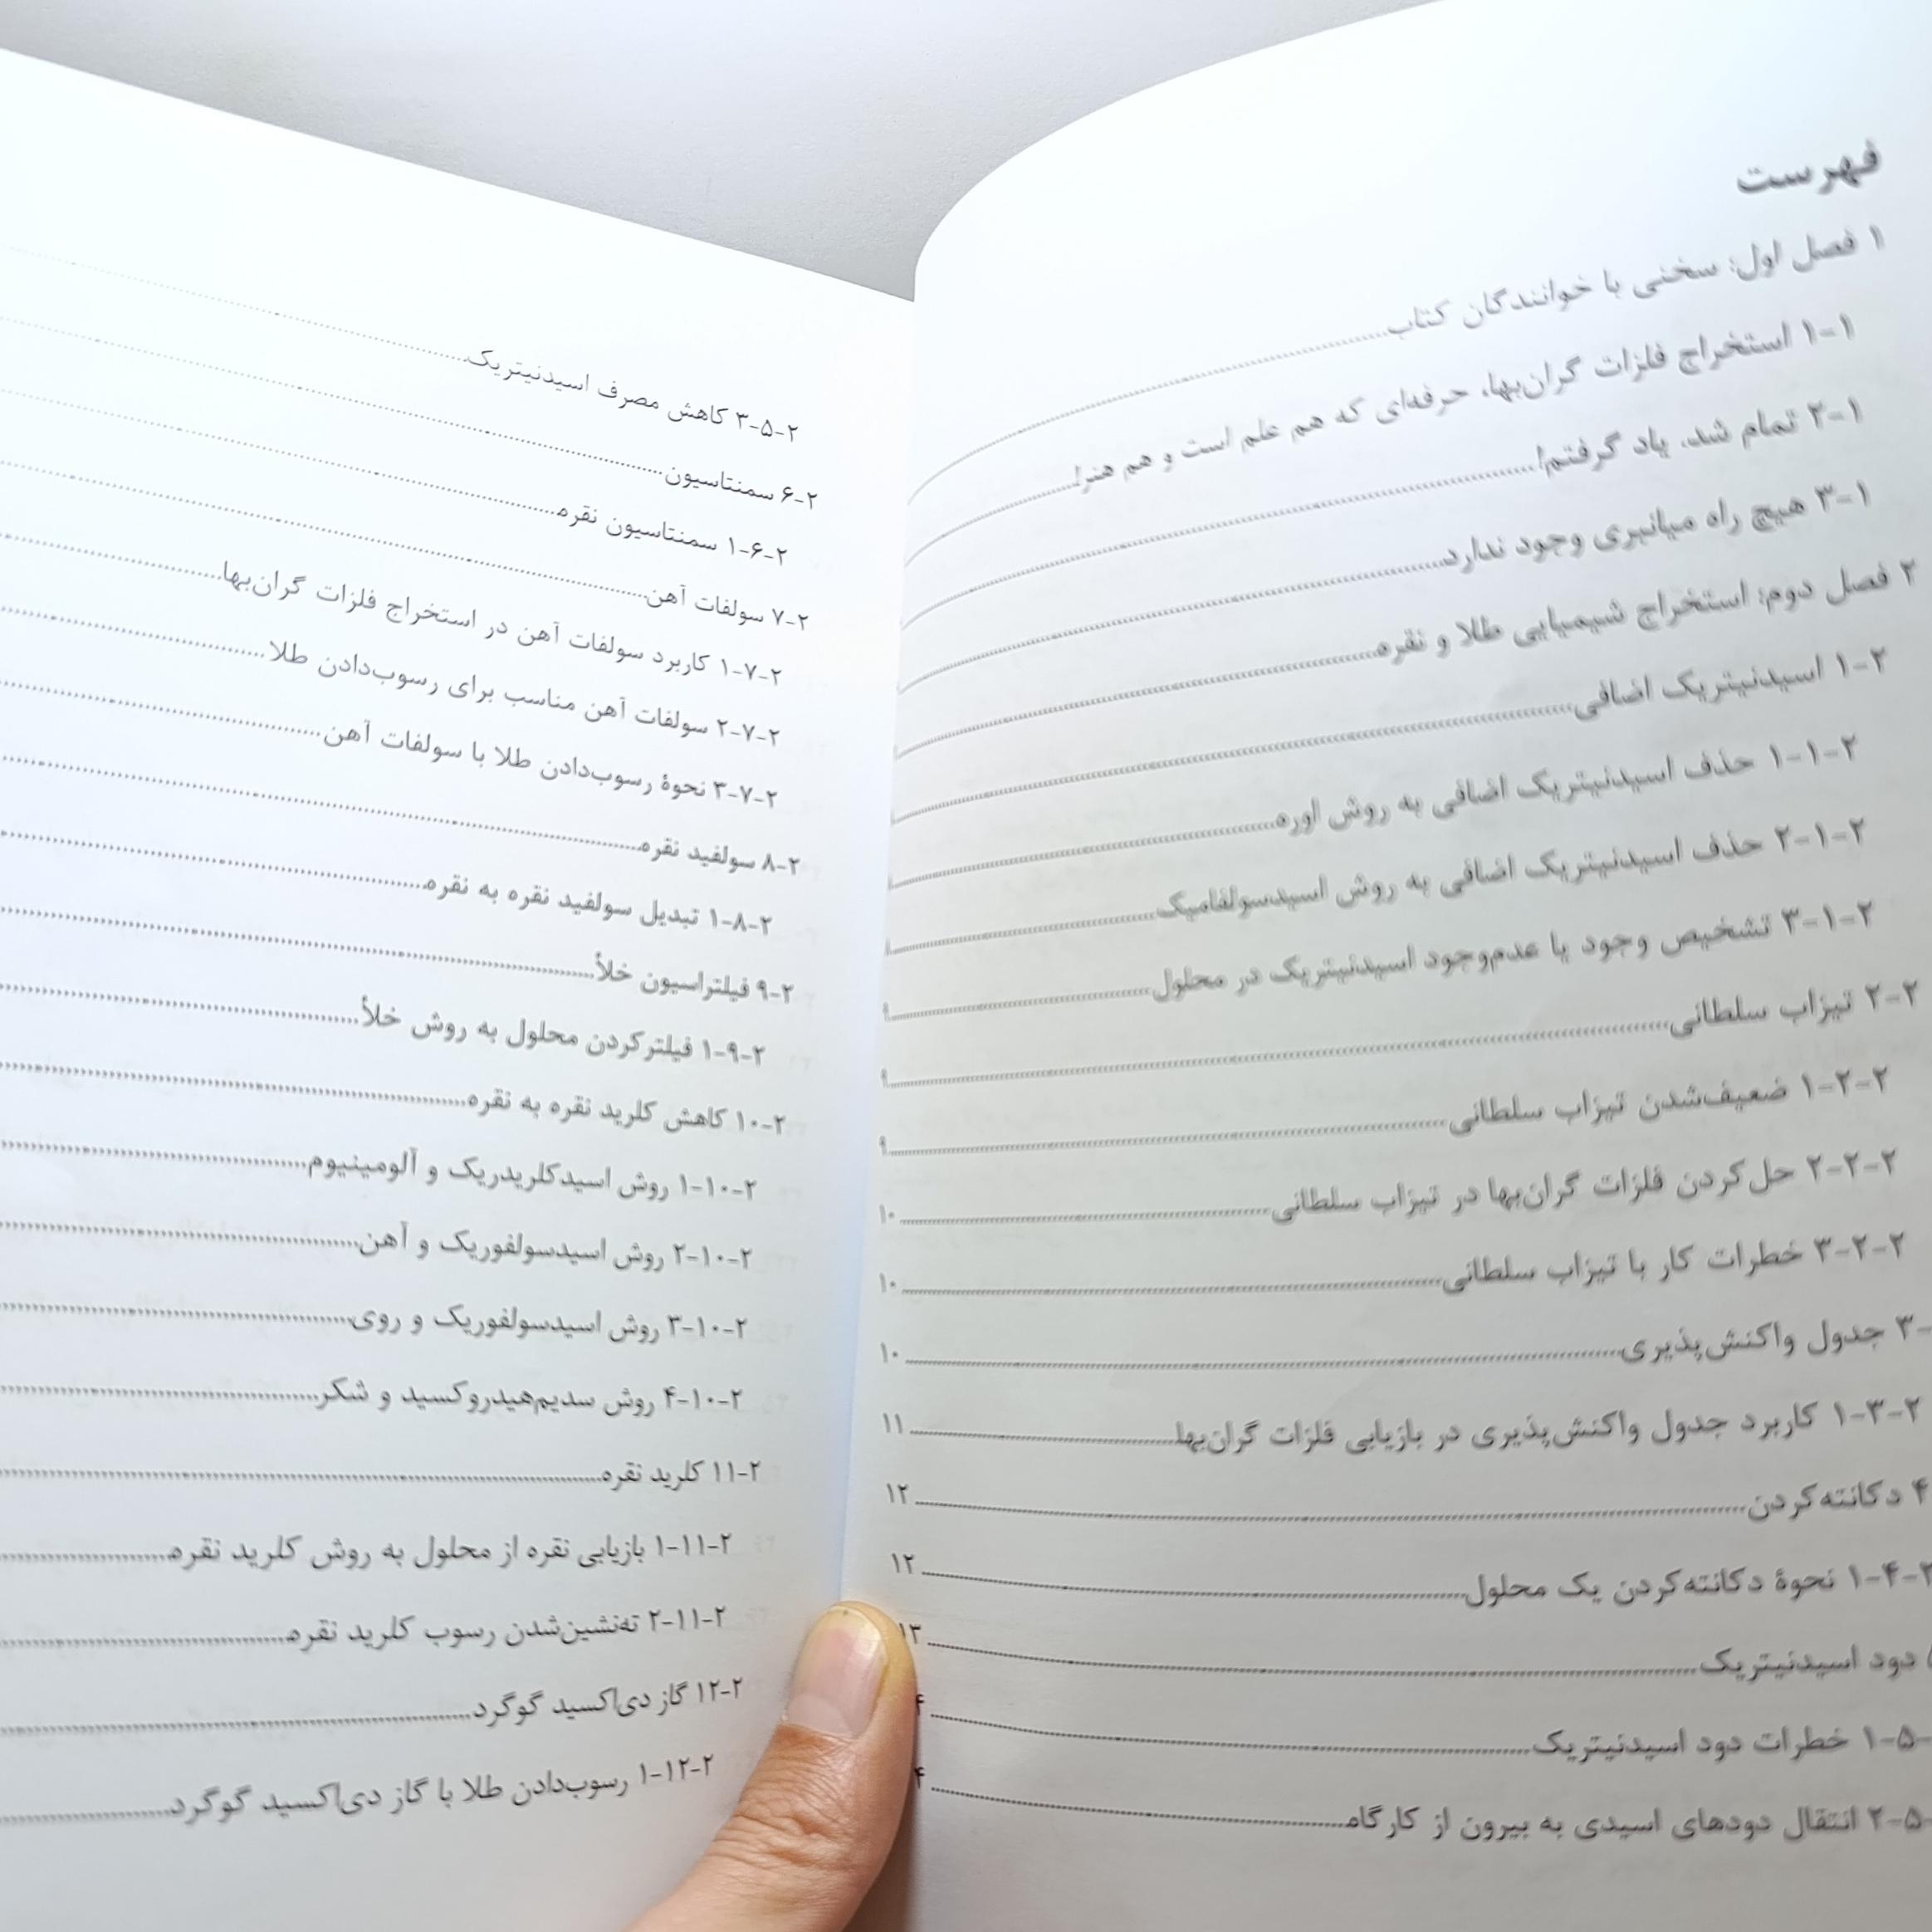 فهرست
۱ فصل اول: سخنی با خوانندگان کتاب
۱-۱ استخراج فلزات گران‌بها، حرفه‌ای که هم علم است و هم هنر!
۲-۱ تمام شد، یاد گرفتم!
۳-۱ هیچ راه میانبری وجود ندارد
۲ فصل دوم: استخراج شیمیایی طلا و نقره
۱-۲ اسیدنیتریک اضافی
۱-۱-۲ حذف اسیدنیتریک اضافی به روش اوره
۲-۱-۲ حذف اسیدنیتریک اضافی به روش اسیدسولفامیک
۳-۱-۲ تشخیص وجود یا عدم‌وجود اسیدنیتریک در محلول
۲-۲ تیزاب سلطانی ۹
۱-۲-۲ ضعیف‌شدن تیزاب سلطانی ۹
۲-۲-۲ حل‌کردن فلزات گران‌بها در تیزاب سلطانی ۱۰
۳-۲-۲ خطرات کار با تیزاب سلطانی ۱۰
۳- جدول واکنش‌پذیری ۱۰
۱-۳-۲ کاربرد جدول واکنش‌پذیری در بازیابی فلزات گران‌بها ۱۱
۴ دکانته‌کردن ۱۲
۱-۴-۲ نحوهٔ دکانته‌کردن یک محلول ۱۲
دود اسیدنیتریک ۱۳
۱-۵- خطرات دود اسیدنیتریک ۴
۲-۵- انتقال دودهای اسیدی به بیرون از کارگاه ۴
۳-۵-۲ کاهش مصرف اسیدنیتریک
۶-۲ سمنتاسیون
۱-۶-۲ سمنتاسیون نقره
۷-۲ سولفات آهن
۱-۷-۲ کاربرد سولفات آهن در استخراج فلزات گران‌بها
۲-۷-۲ سولفات آهن مناسب برای رسوب‌دادن طلا
۳-۷-۲ نحوهٔ رسوب‌دادن طلا با سولفات آهن
۸-۲ سولفید نقره
۱-۸-۲ تبدیل سولفید نقره به نقره
۹-۲ فیلتراسیون خلأ
۱-۹-۲ فیلترکردن محلول به روش خلأ
۱۰-۲ کاهش کلرید نقره به نقره
۱-۱۰-۲ روش اسیدکلریدریک و آلومینیوم
۲-۱۰-۲ روش اسیدسولفوریک و آهن
۳-۱۰-۲ روش اسیدسولفوریک و روی
۴-۱۰-۲ روش سدیم‌هیدروکسید و شکر
۱۱-۲ کلرید نقره
۱-۱۱-۲ بازیابی نقره از محلول به روش کلرید نقره
۲-۱۱-۲ ته‌نشین‌شدن رسوب کلرید نقره
۱۲-۲ گاز دی‌اکسید گوگرد
۱-۱۲-۲ رسوب‌دادن طلا با گاز دی‌اکسید گوگرد